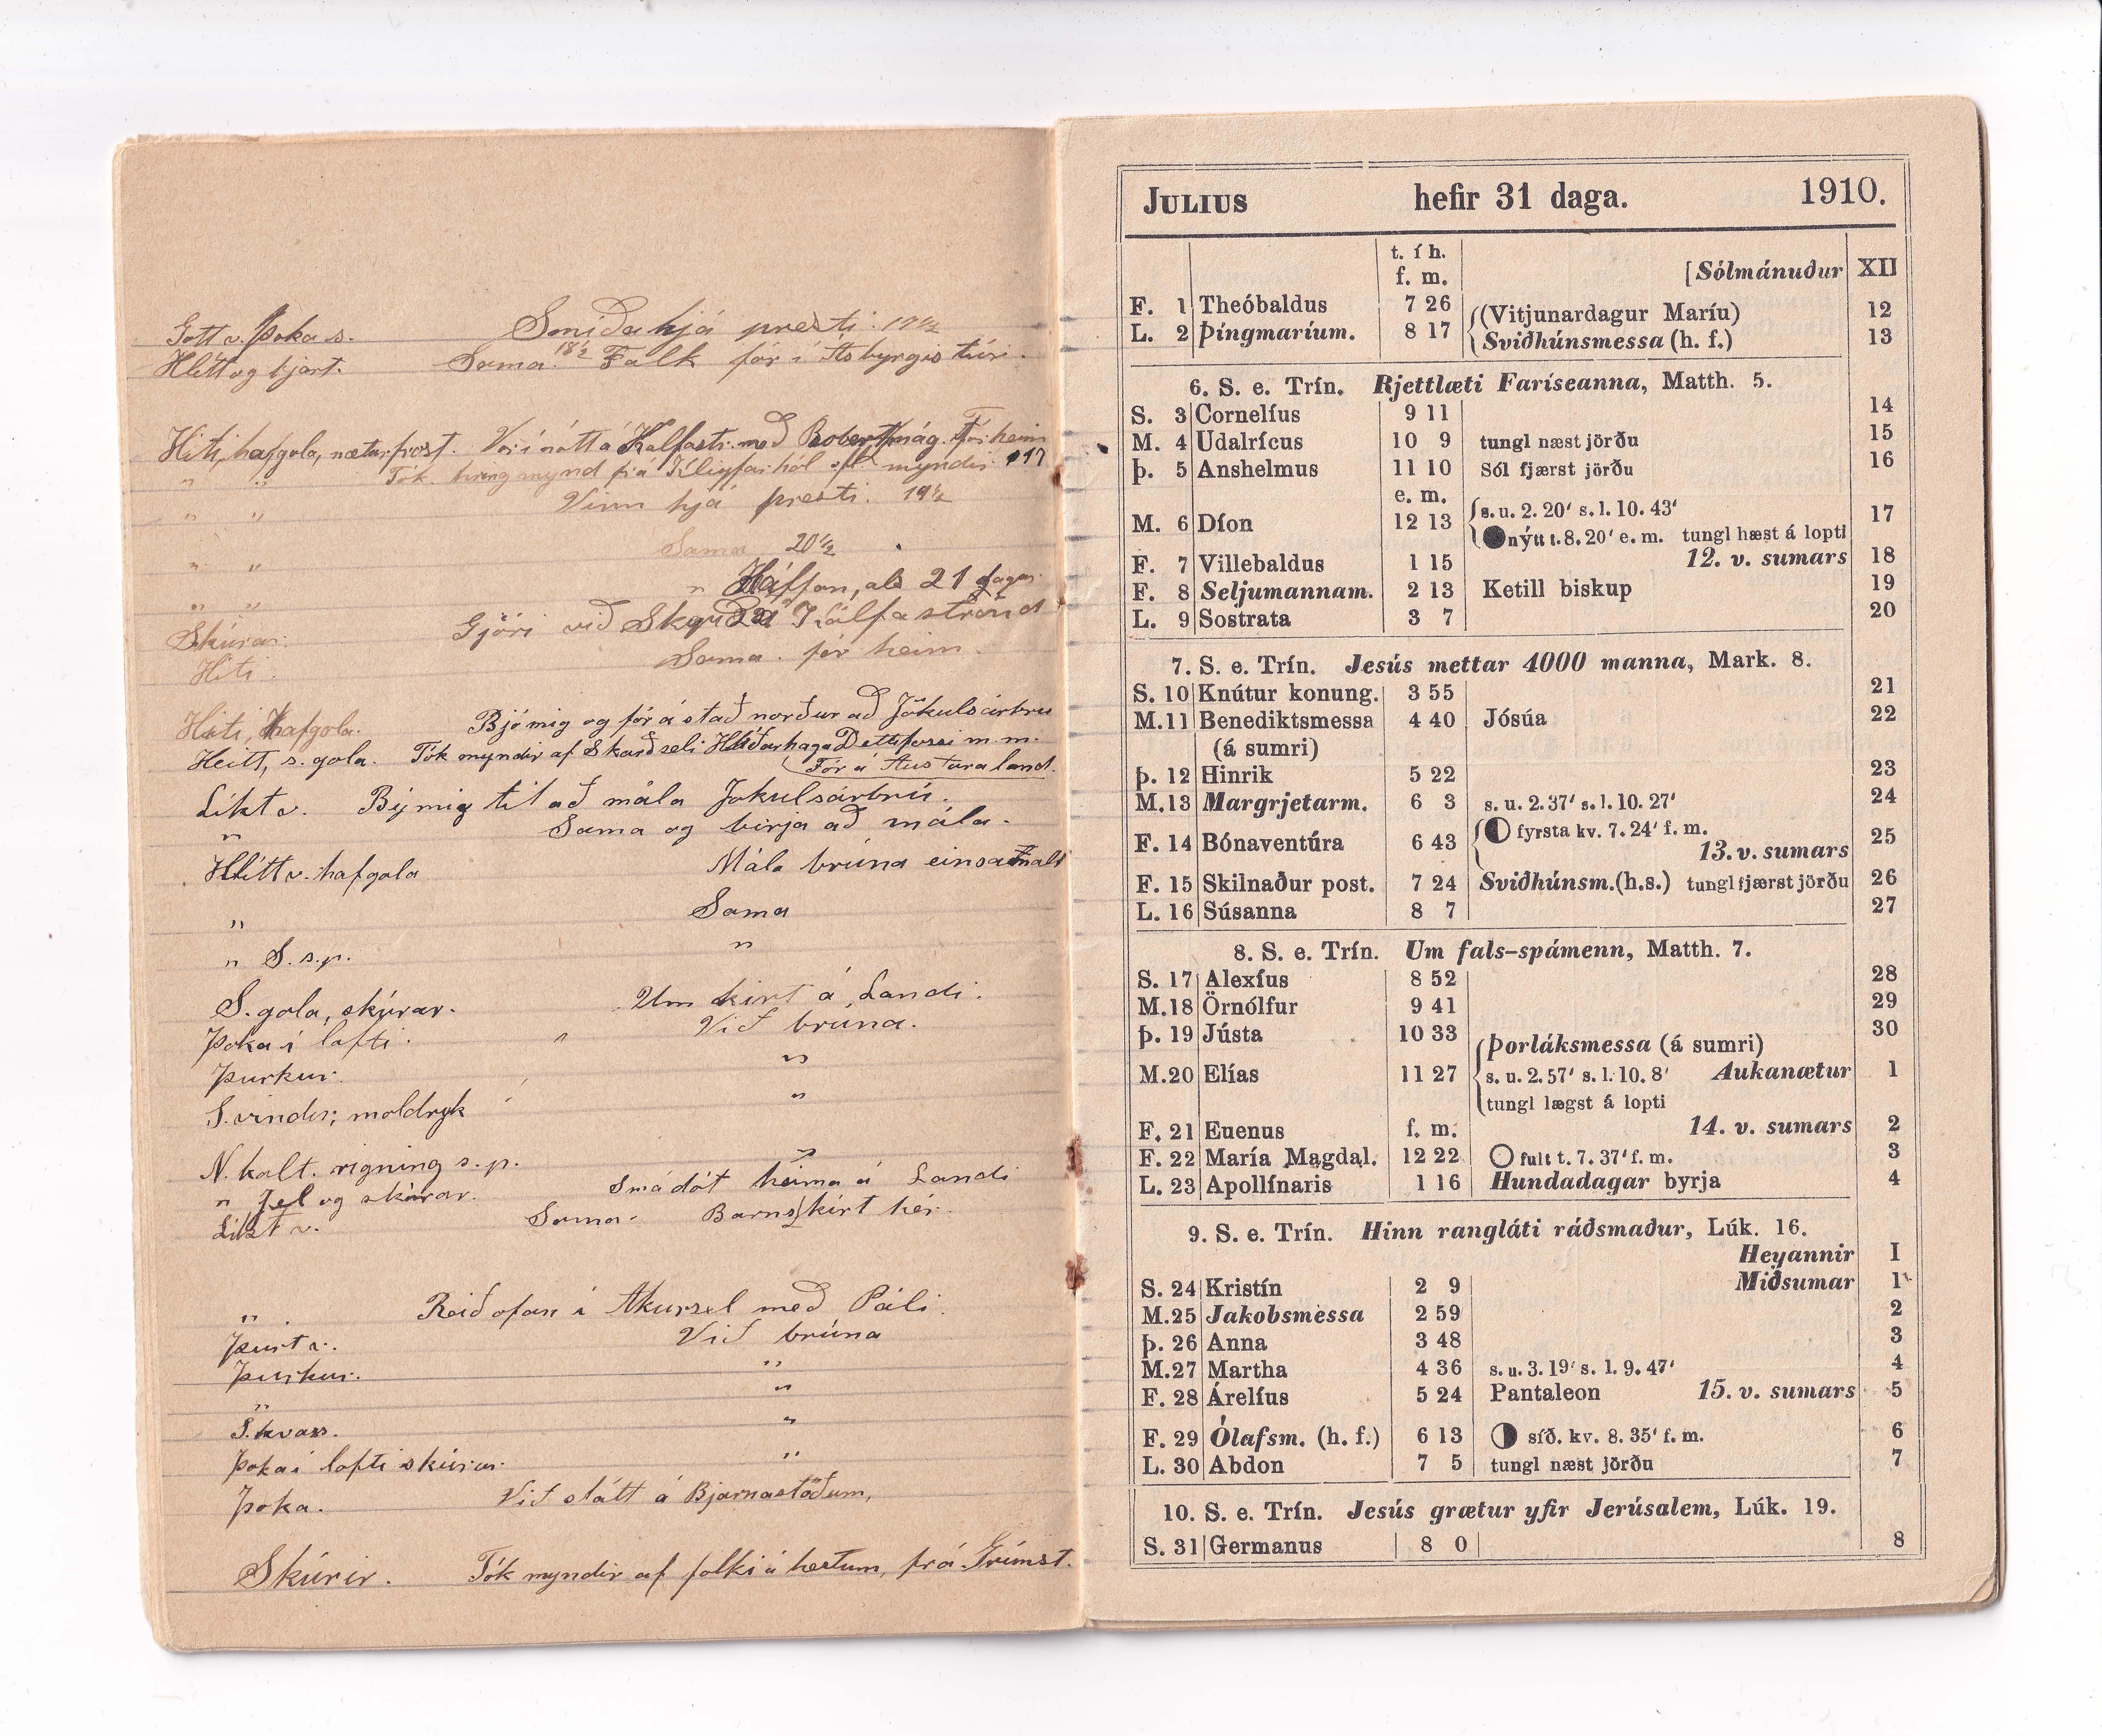 Gott v. Þoka s. Smiða hjá presti. 19½
Hlítt og bjart. Sama. 18½ Falk fór í Asbyrgis túr.
Hiti, hafgola, næturfrost. Var í nótt á Kalfastr. með Robert Fór heim
" " Tók hringmynd frá myndir 17
" " Vinn hjá presti. 19½
" " Sama 20½
" " " Hálfan, als 21 dagur.
Skúrar. Gjöri við á Kálfaströnd
Hiti. Sama. fór heim.
Hiti, hafgola. Bjó mig og fór á stað norður að Jökulsárbrú
Heitt, s. gola. Tók myndir af Skarðseli Hlíðarhaga Dettifossi m. m.
Fór á Austara land.
Líkt v. Bý mig til að mála Jökulsárbrú.
" Sama og birja að mála.
Hlítt v. hafgola Mála brúna einsamall
" Sama
" S. s.p. "
S. gola, skúrar. Um kirt á Landi.
Þoka í lofti. Við brúna.
Þurkur. "
S. vindur; moldryk "
N. kalt. rigning s.p. "
" Jel og skúrar. Smá dót heima á Landi
Líkt v. Sama. Barnskírt hér.
" Reið ofan í Akursel með Páli.
Þurt v. Við brúna
Þurkur. "
" "
S. hvass. "
Þoka í lofti skúrar. "
Þoka. Við slátt á Bjarnastöðum,
Skúrir. Tók myndir af fólki á hestum, frá Grímst.
JULIUS hefir 31 daga. 1910.
t. í h.
f. m. [Sólmánuður XII
F. 1 Theóbaldus 7 26 (Vitjunardagur Maríu) 12
L. 2 Þíngmaríum. 8 17 Sviðhúnsmessa (h. f.) 13
6. S. e. Trín. Rjettlæti Faríseanna, Matth. 5.
S. 3 Cornelíus 9 11 14
M. 4 Udalrícus 10 9 tungl næst jörðu 15
Þ. 5 Anshelmus 11 10 Sól fjærst jörðu 16
e. m.
M. 6 Díon 12 13 s. u. 2. 20' s. l. 10. 43' 17
nýtt t. 8. 20' e. m. tungl hæst á lopti
F. 7 Villebaldus 1 15 12. v. sumars 18
F. 8 Seljumannam. 2 13 Ketill biskup 19
L. 9 Sostrata 3 7 20
7. S. e. Trín. Jesús mettar 4000 manna, Mark. 8.
S. 10 Knútur konung. 3 55 21
M. 11 Benediktsmessa 4 40 Jósúa 22
(á sumri)
Þ. 12 Hinrik 5 22 23
M. 13 Margrjetarm. 6 3 s. u. 2. 37' s. l. 10. 27' 24
F. 14 Bónaventúra 6 43 fyrsta kv. 7. 24' f. m. 25
13. v. sumars
F. 15 Skilnaður post. 7 24 Sviðhúnsm. (h.s.) tungl fjærst jörðu 26
L. 16 Súsanna 8 7 27
8. S. e. Trín. Um fals-spámenn, Matth. 7.
S. 17 Alexíus 8 52 28
M. 18 Örnólfur 9 41 29
Þ. 19 Jústa 10 33 30
Þorláksmessa (á sumri)
M. 20 Elías 11 27 s. u. 2. 57' s. l. 10. 8' Aukanætur 1
tungl lægst á lopti
F. 21 Euenus f. m. 14. v. sumars 2
F. 22 María Magdal. 12 22 fult t. 7. 37' f. m. 3
L. 23 Apollínaris 1 16 Hundadagar byrja 4
9. S. e. Trín. Hinn rangláti ráðsmaður, Lúk. 16.
Heyannir I
S. 24 Kristín 2 9 Miðsumar 1
M. 25 Jakobsmessa 2 59 2
Þ. 26 Anna 3 48 3
M. 27 Martha 4 36 s. u. 3. 19' s. l. 9. 47' 4
F. 28 Árelíus 5 24 Pantaleon 15. v. sumars 5
F. 29 Ólafsm. (h. f.) 6 13 síð. kv. 8. 35' f. m. 6
L. 30 Abdon 7 5 tungl næst jörðu 7
10. S. e. Trín. Jesús grætur yfir Jerúsalem, Lúk. 19.
S. 31 Germanus 8 0 8